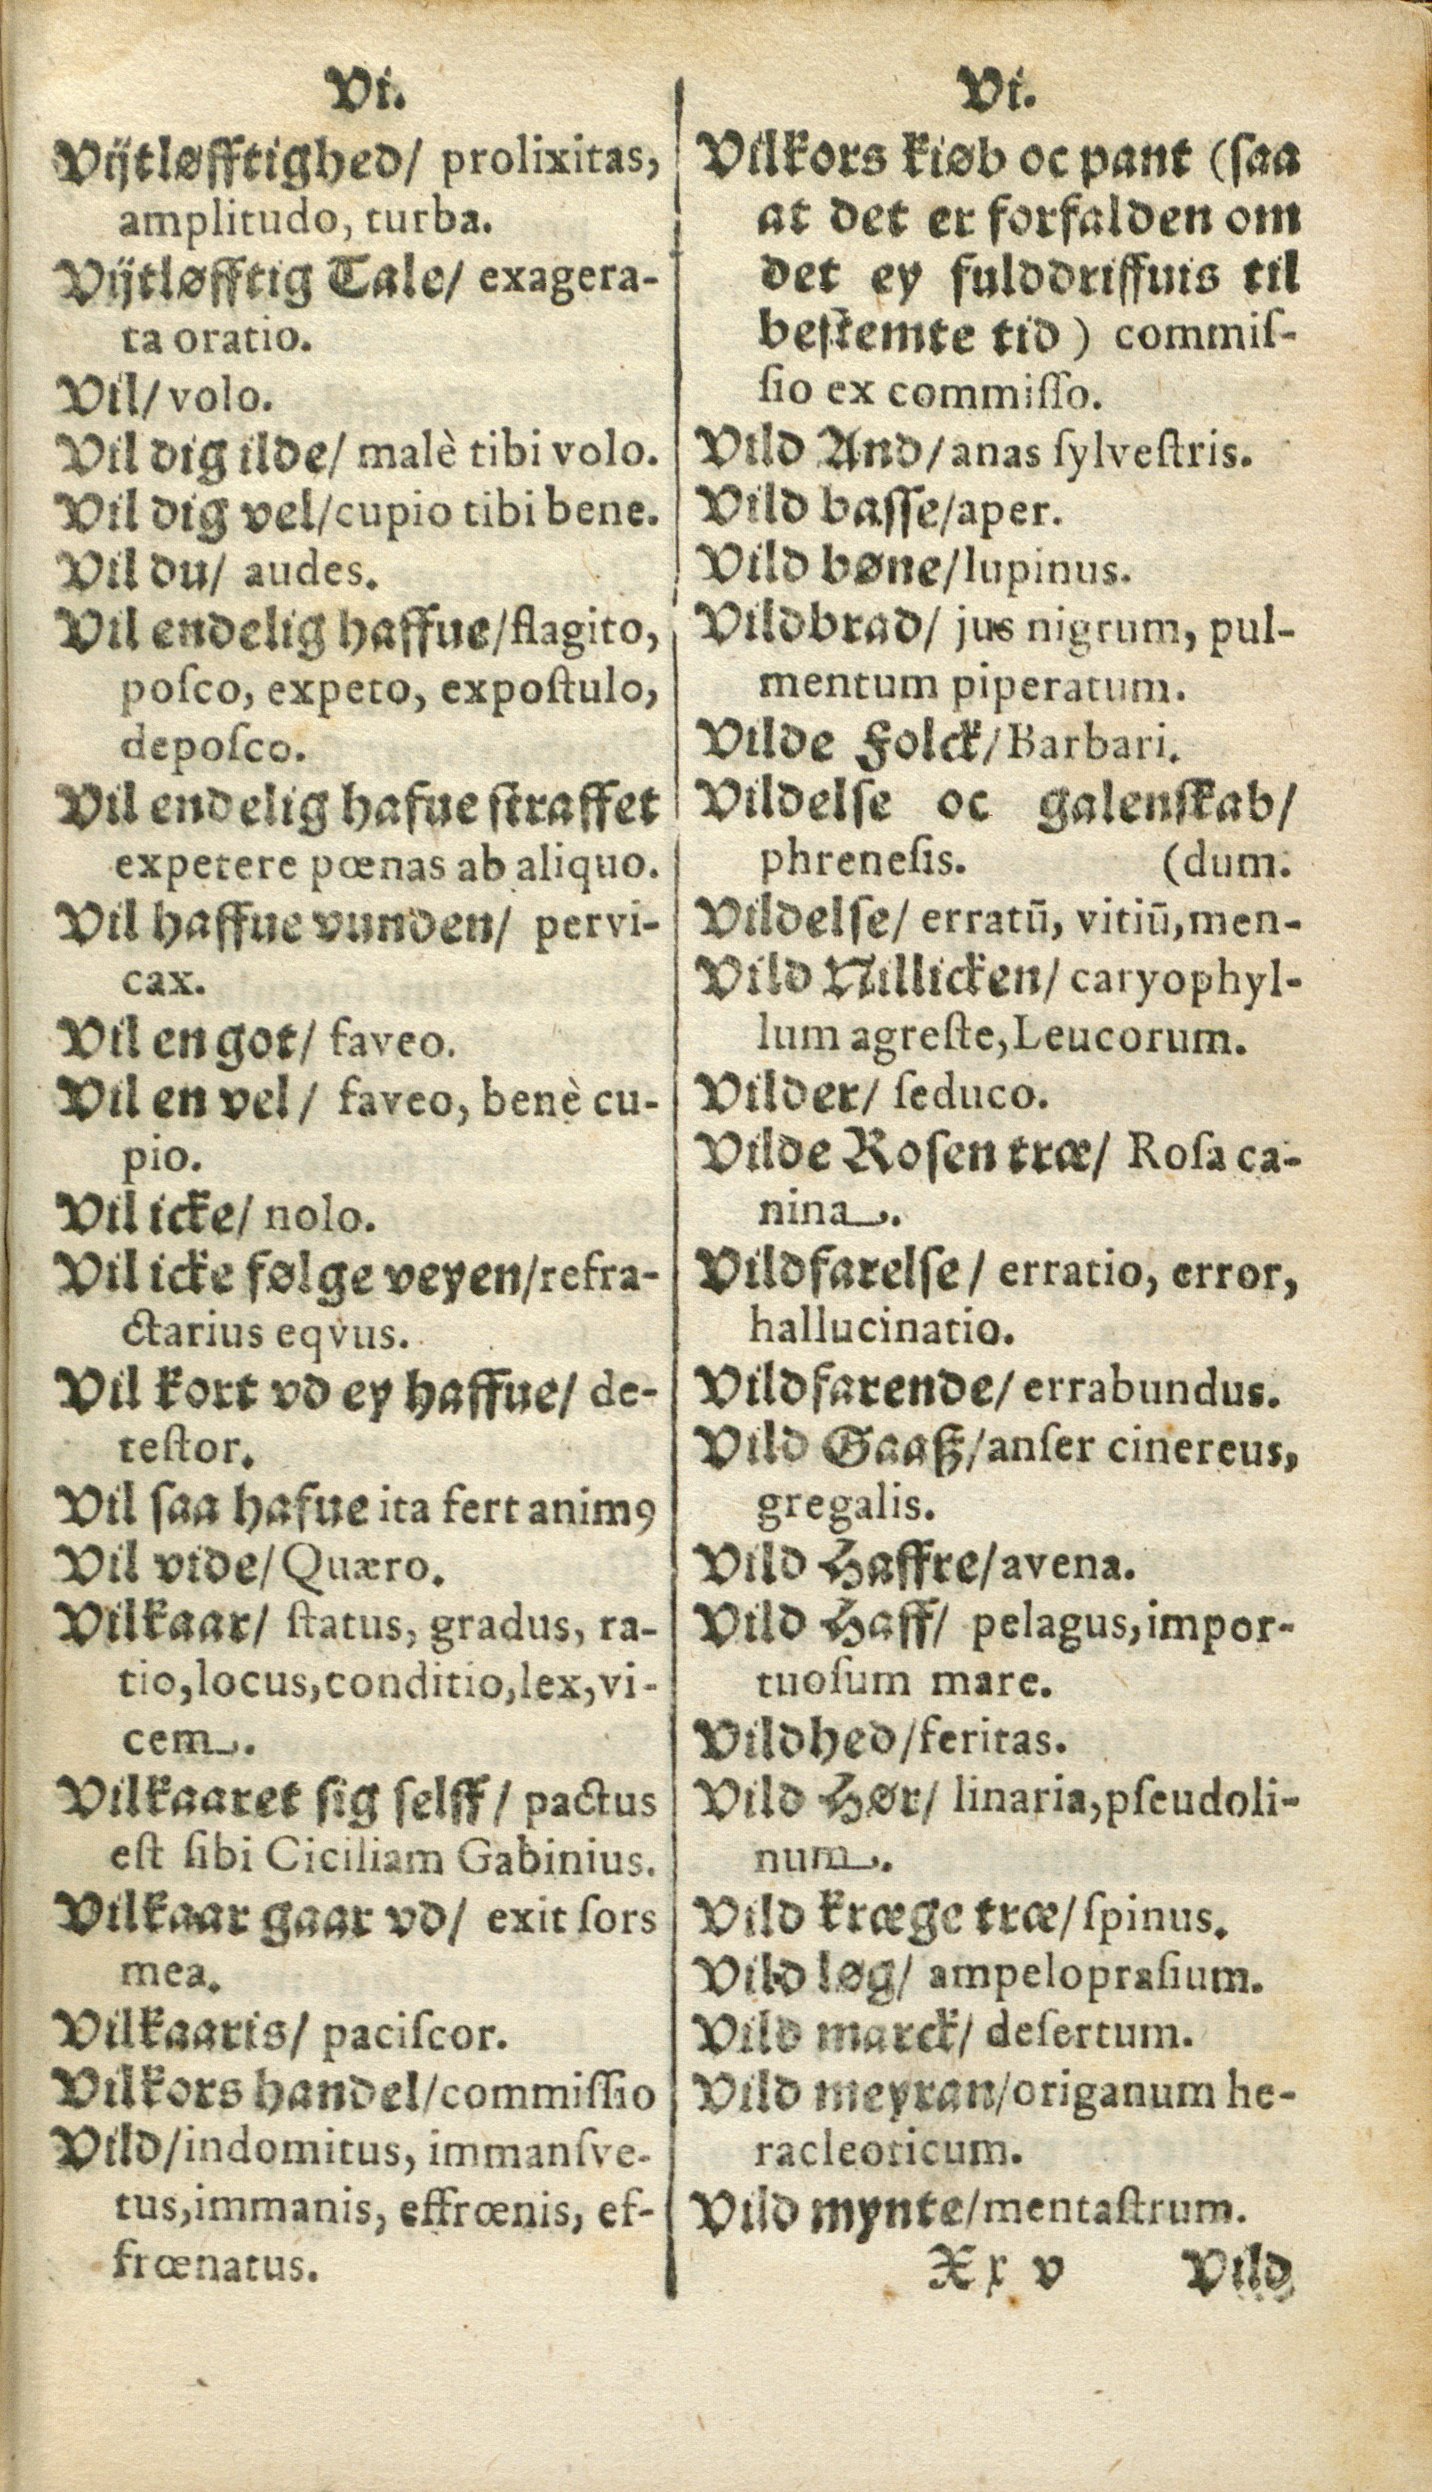 Vi.
Vijtløfftighed/ prolixitas,
amplitudo, turba.
Vijtløfftig Tale/ exagera-
ta oratio.
Vil/ volo.
Vil dig ilde/ malè tibi volo.
Vil dig vel/cupio tibi bene.
Vil du/ audes.
Vil endelig haffue/flagito,
poſco, expeto, expoſtulo,
depoſco.
Vil endelig hafue ſtraffet
expetere pœnas ab aliquo.
Vil haffue vunden/ pervi-
cax.
Vil en got/ faveo.
Vil en vel/ faveo, benè cu-
pio.
Vil icke/ nolo.
Vil icke følge veyen/refra-
ctarius eqvus.
Vil kort vd ey haffue/ de-
teſtor.
Vil ſaa hafue ita fert animꝯ
Vil vide/ Quæro.
Vilkaar/ ſtatus, gradus, ra-
tio,locus,conditio,lex,vi-
cem.
Vilkaaret ſig ſelff/ pactus
eſt ſibi Ciciliam Gabinius.
Vilkaar gaar vd/ exit ſors
mea.
Vilkaaris/ paciſcor.
Vilkors handel/commiſſio
Vild/indomitus, immanſve-
tus,immanis, effrœnis, ef-
frœnatus.
Vi.
Vilkors kiøb oc pant (ſaa
at det er forfalden om
det ey fulddriffuis til
beſtemte tid) commiſ-
ſio ex commiſſo.
Vild And/anas ſylveſtris.
Vild baſſe/aper.
Vild bøne/lupinus.
Vildbrad/ jus nigrum, pul-
mentum piperatum.
Vilde Folck/Barbari.
Vildelſe oc galenſkab/
phreneſis. (dum.
Vildelſe/ erratū, vitiū,men-
Vild Nillicken/ caryophyl-
lum agreſte,Leucorum.
Vilder/ ſeduco.
Vilde Roſen træ/ Roſa ca-
nina.
Vildfarelſe/ erratio, error,
hallucinatio.
Vildfarende/ errabundus.
Vild Gaaß/anſer cinereus,
gregalis.
Vild Haffre/avena.
Vild Haff/ pelagus,impor-
tuoſum mare.
Vildhed/feritas.
Vild Hør/ linaria,pſeudoli-
num.
Vild kræge træ/ſpinus.
Vild løg/ ampelopraſium.
Vild marck/ deſertum.
Vild meyran/origanum he-
racleoticum.
Vild mynte/mentaſtrum.
Xx v Vild